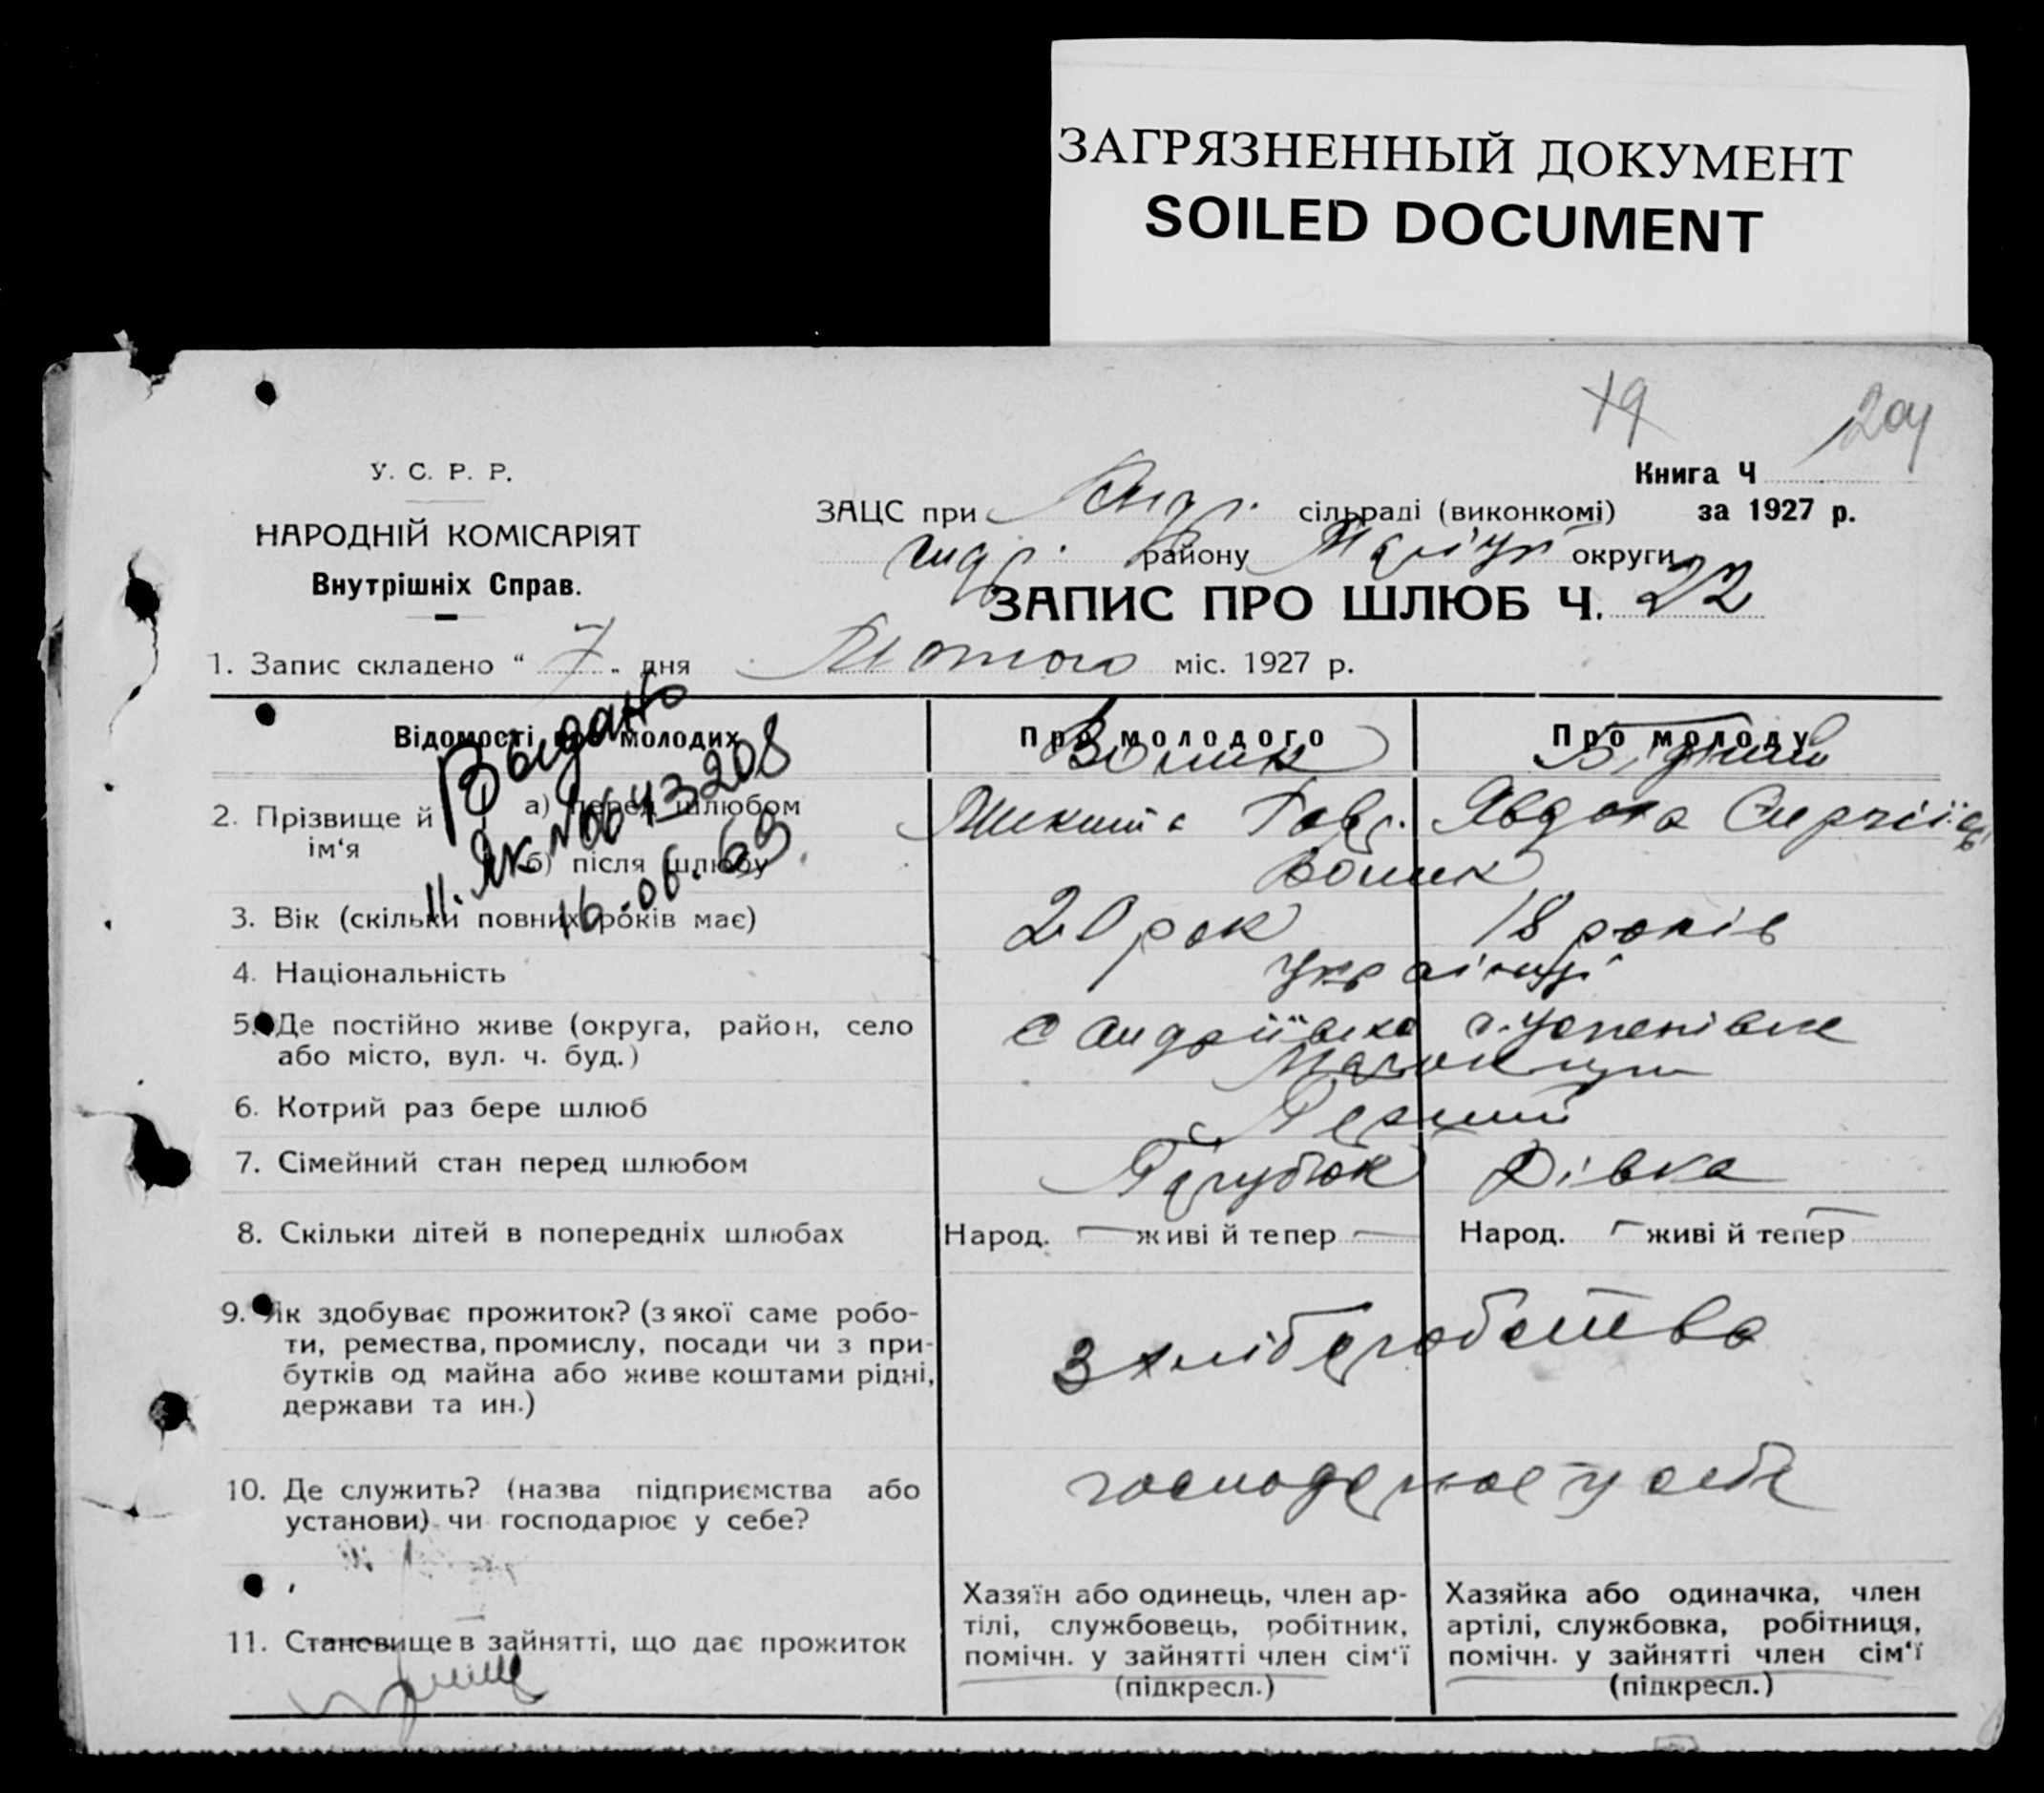 ЗАГРЯЗНЕННЫЙ ДОКУМЕНТ
SOILED DOCUMENT
19
204
У. С. Р. Р.
НАРОДНІЙ КОМІСАРІЯТ
Внутрішніх Справ.
Книга Ч
ЗАЦС при Андр. сільраді (виконкомі) за 1927 р.
Андр. району Маріуп округи
ЗАПИС ПРО ШЛЮБ Ч. 22
1. Запис складено “ 7 „ дня Лютого міс. 1927 р.
Відомості про молодих
Про молодого
Про молоду
Выдано
II. ЯК № 0643208
16.06.69
2. Прізвище й ім‘я
а) перед шлюбом
Микита Гавр.
Явдоха
б) після шлюбу
3. Вік (скільки повних років має)
20 рок
18 років
4. Національність
українці
5. Де постійно живе (округа, район, село
або місто, вул. ч. буд.)
с Андріївка
с. Успенівка
6. Котрий раз бере шлюб
Перший
7. Сімейний стан перед шлюбом
Парубок
Дівка
8. Скільки дітей в попередніх шлюбах
Народ. — живі й тепер —
Народ. — живі й тепер —
9. Як здобуває прожиток? (з якої саме робо-
ти, ремества, промислу, посади чи з при-
бутків од майна або живе коштами рідні,
держави та ин.)
З хліборобства
10. Де служить? (назва підприємства або
установи) чи господарює у себе?
господарює у себе
11. Становище в зайнятті, що дає прожиток
Хазяїн або одинець, член ар-
тілі, службовець, робітник,
помічн. у зайнятті член сім‘ї
(підкресл.)
Хазяйка або одиначка, член
артілі, службовка, робітниця,
помічн. у зайнятті член сім‘ї
(підкресл.)